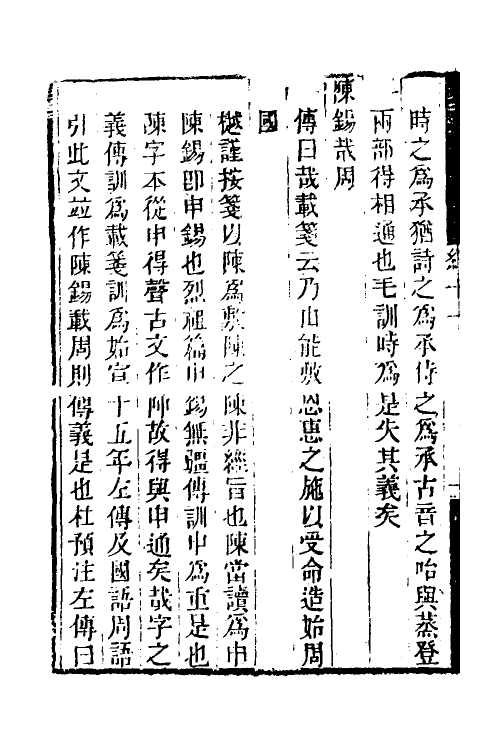 時之爲承猶詩之爲承侍之爲承古音之咍與蒸登
兩部得相通也毛訓時爲是失其義矣
陳錫哉周
傳曰哉載箋云乃由能敷恩惠之施以受命造始周
國
樾謹按箋以陳爲敷陳之陳非經旨也陳當讀爲申
陳錫卽申錫也烈祖篇申錫無疆傳訓申爲重是也
陳字本從申得聲古文作陣故得與申通矣哉字之
義傳訓爲載箋訓爲始宣十五年左傳及國語周語
引此文竝作陳錫載周則傳義是也杜預注左傳曰